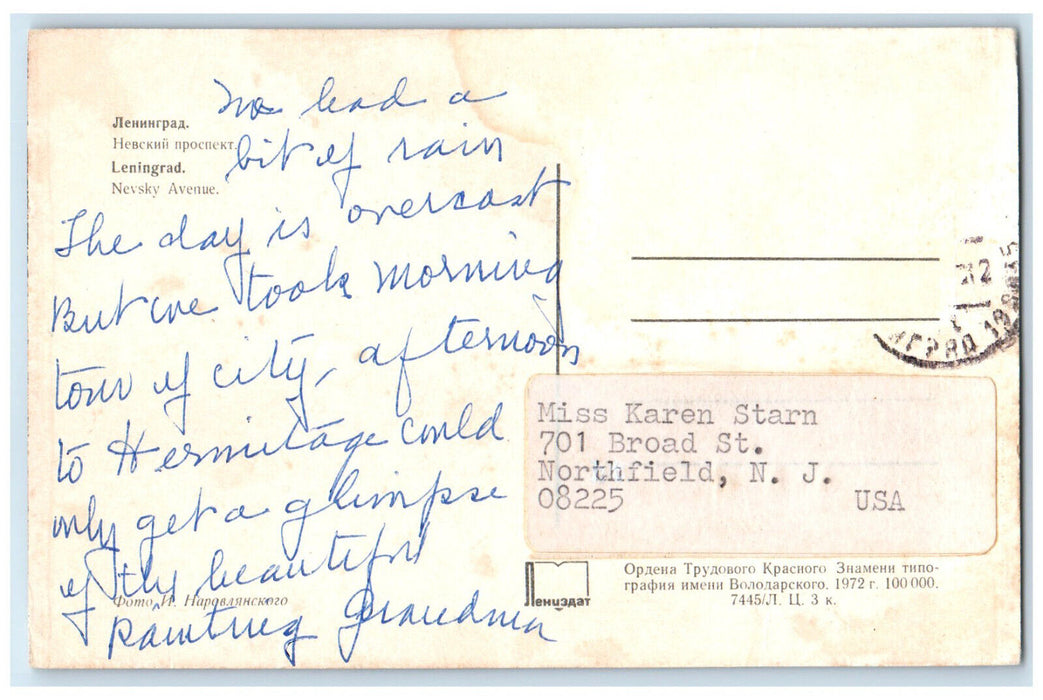 Ленинград.
Невский проспект.
Leningrad.
Nevsky Avenue.
We had a
bit of rain
The day is overcast
But we took morning
tour of city, afternoon
to Hermitage could
only get a glimpse
of the beautiful
Painting Grandma
Фото И. Наровлянского
12
ГРАД
Miss Karen Starn
701 Broad St.
Northfield, N. J.
08225 USA
Лениздат
Ордена Трудового Красного Знамени типо-
графия имени Володарского. 1972 г. 100 000.
7445/Л. Ц. 3 к.